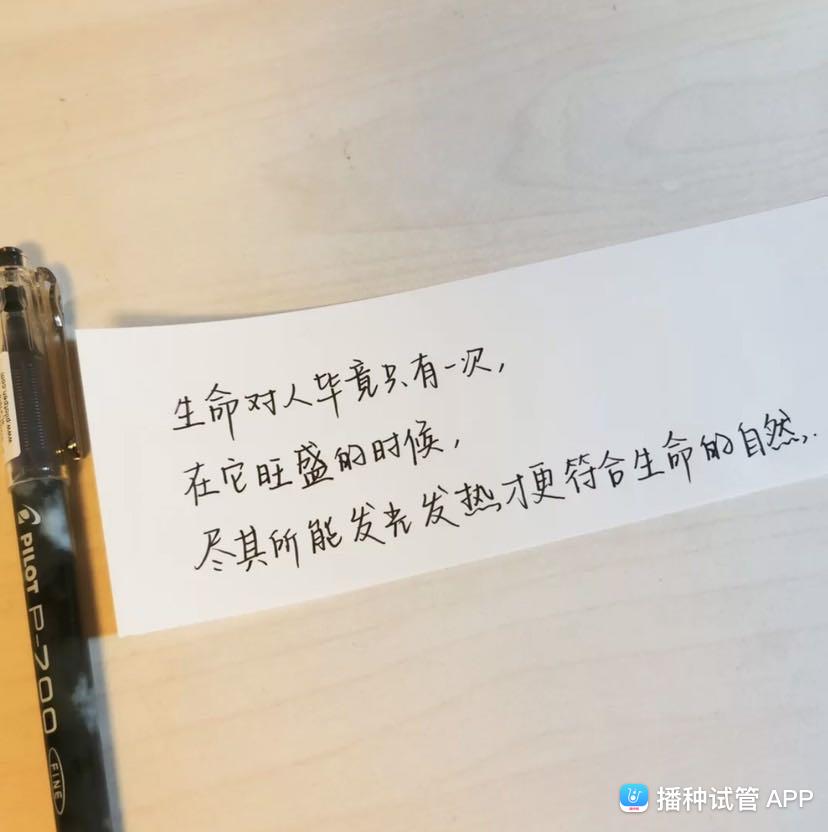 生命对人毕竟只有一次，
在它旺盛的时候，
尽其所能发光发热才更符合生命的自然，.
PILOT P-700
FINE
播种试管 APP